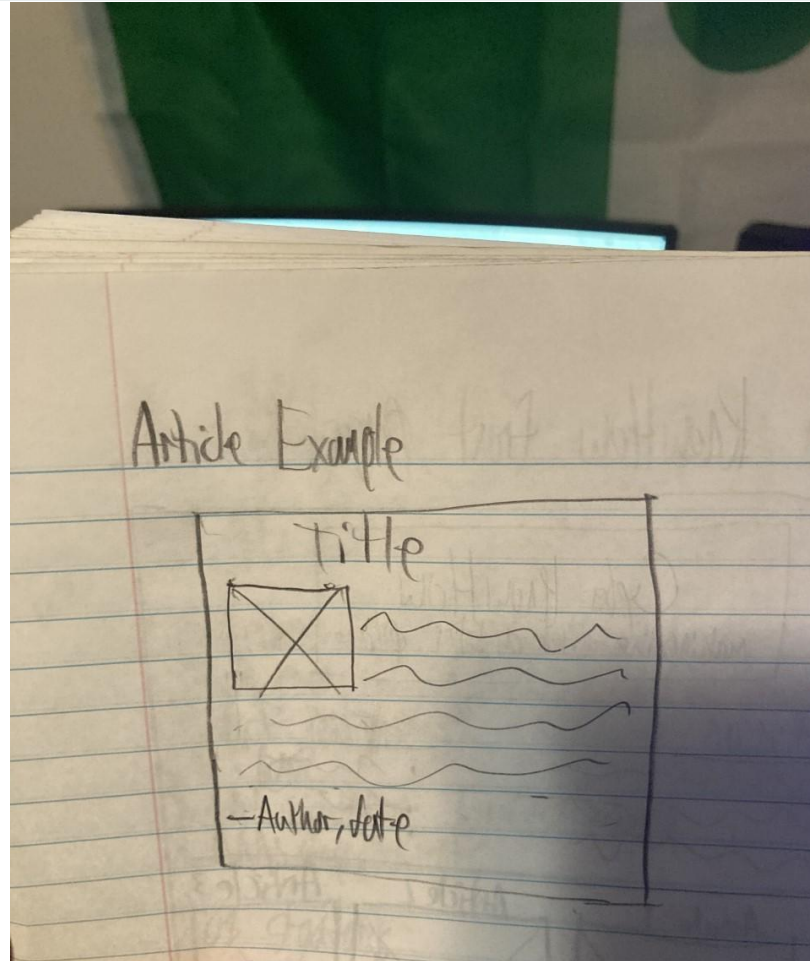 Article Example
Title
- Author, date